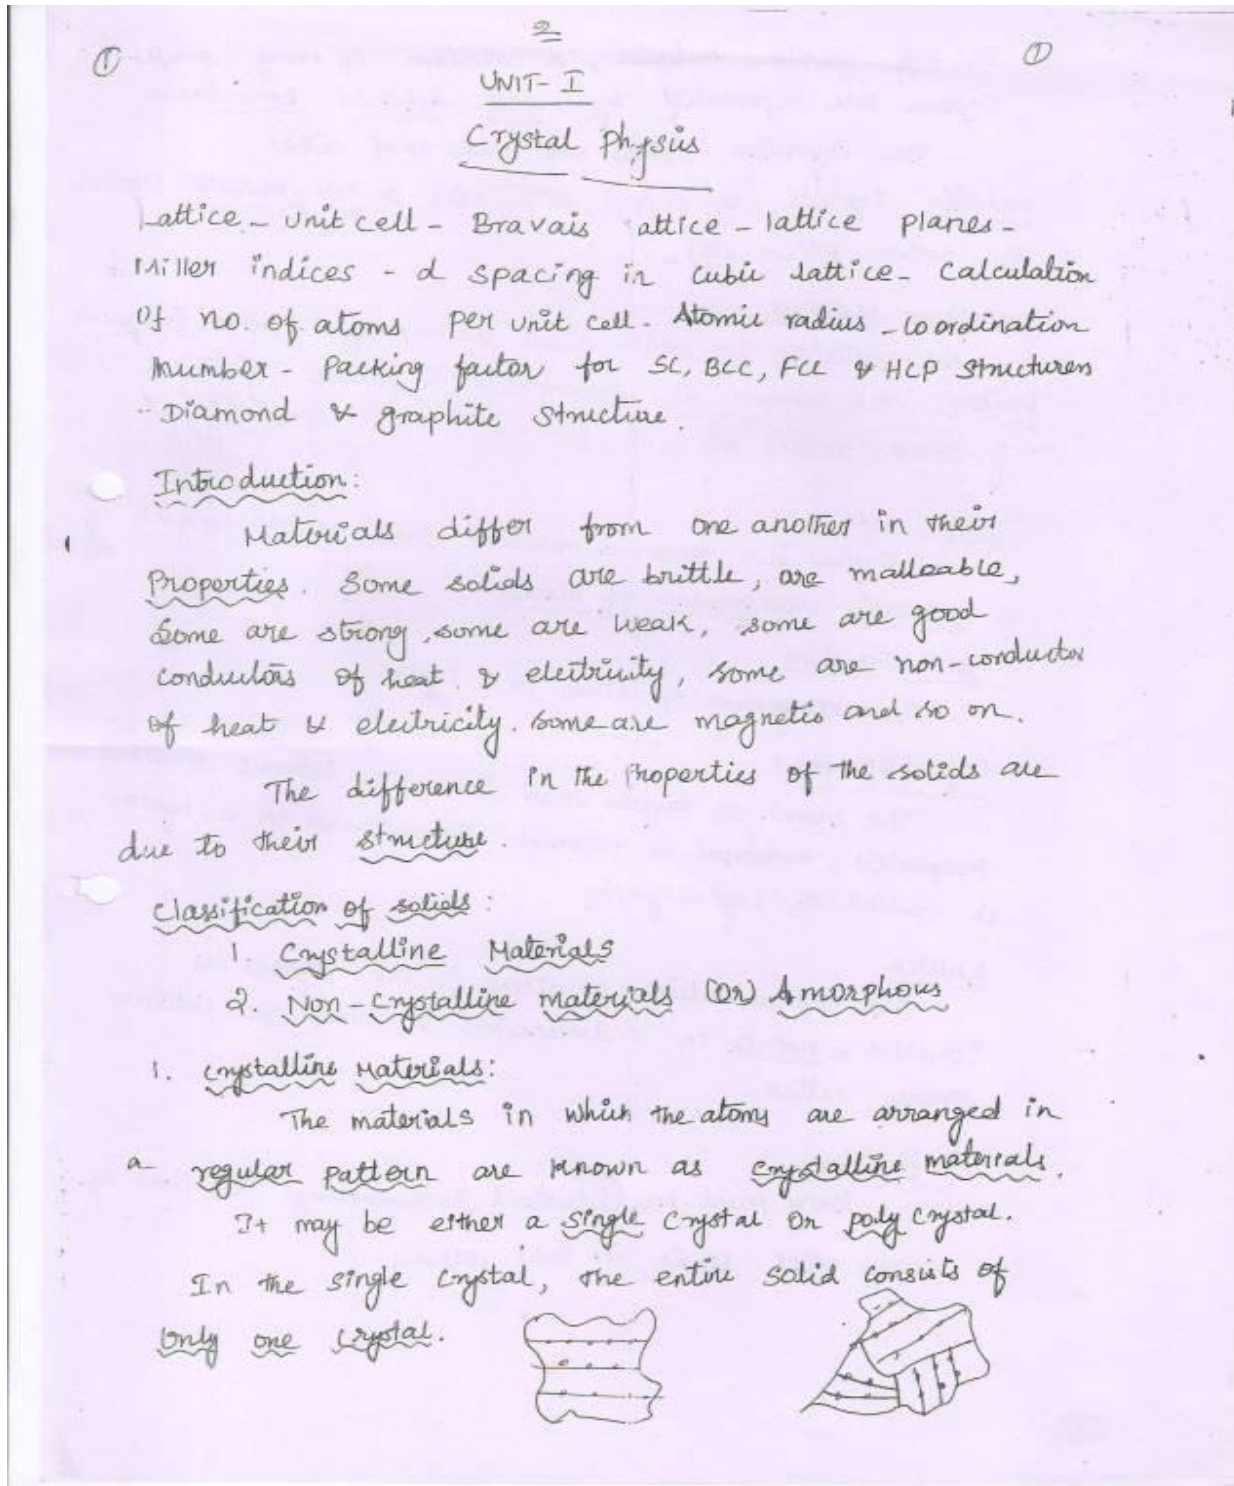 2
① ①
UNIT- I
Crystal Physis
Lattice - Unit cell - Bravais attice - lattice Planes -
Miller indices - d spacing in cubic lattice - Calculation
Of no. of atoms Per unit cell. Atomic radius - coordination
Number - Packing factor for SC, BCC, FCC & HCP Structures
- Diamond & graphite Structure.
Introduction:
Materials differ from one another in their
Properties. Some solids are brittle, are malleable,
Some are strong, some are weak, some are good
conductors of heat & electricity, some are non-conductor
of heat & electricity. Some are magnetic and so on.
The difference in the Properties of the solids are
due to their structure.
Classification of solids :
1. Crystalline Materials
2. Non-Crystalline materials (Or) Amorphous
1. Crystalline Materials:
The materials in which the atoms are arranged in
a regular pattern are known as crystalline materials.
It may be either a single crystal or poly crystal.
In the single crystal, the entire solid consists of
only one crystal.